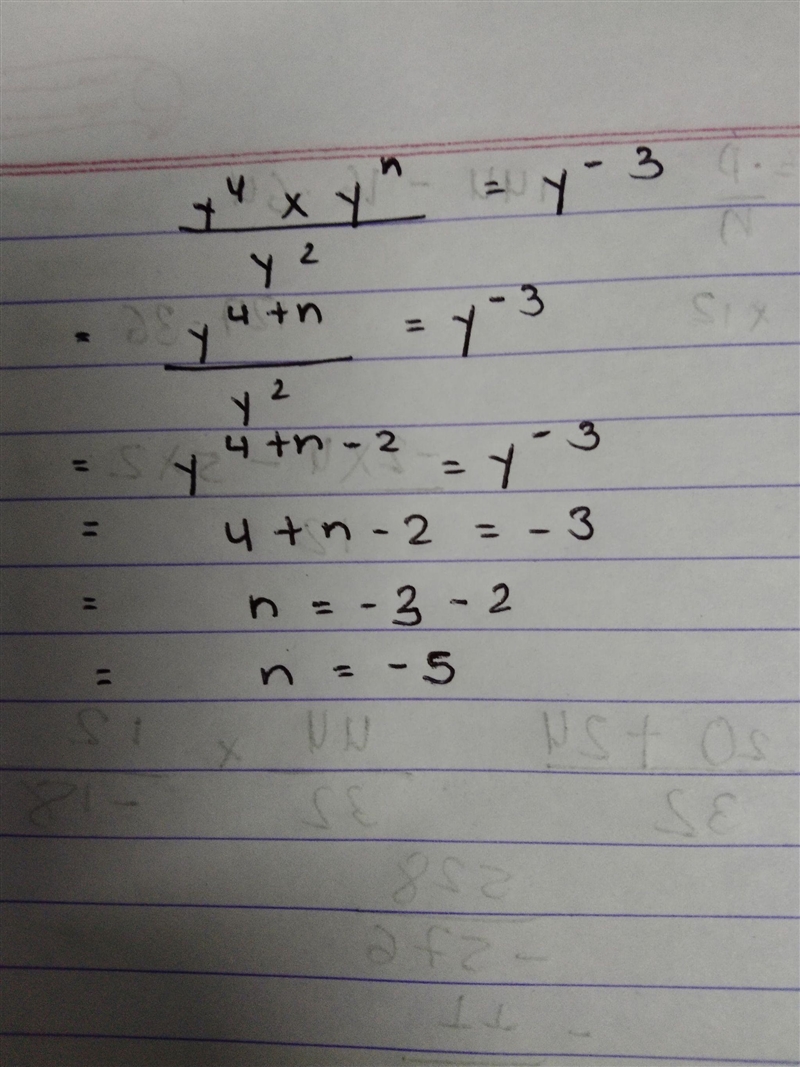 y⁴ × yⁿ / y² = y⁻³
= y⁴⁺ⁿ / y² = y⁻³
= y⁴⁺ⁿ⁻² = y⁻³
= 4 + n - 2 = - 3
= n = - 3 - 2
= n = - 5